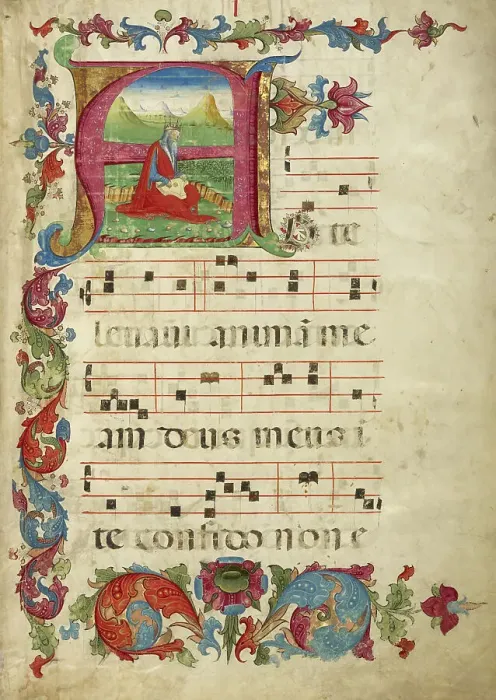 A D te
levavi animā me
am deus meus i
te confido non e